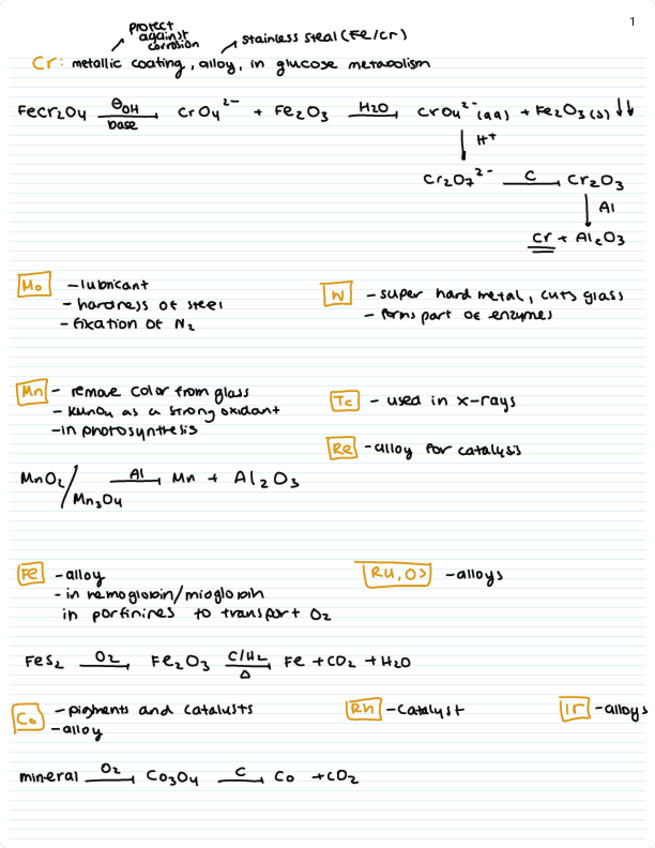 1
protect against corrosion
stainless steal (Fe/Cr)
Cr: metallic coating, alloy, in glucose metabolism
FeCr2O4 ⊖OH base → CrO4 2- + Fe2O3 H2O → CrO4 2- (aq) + Fe2O3 (s) ↓↓
↓ H+
Cr2O7 2- C → Cr2O3
↓ Al
Cr + Al2O3
Mo - lubricant
- hardness of steel
- fixation of N2
W - super hard metal, cuts glass
- forms part of enzymes
Mn - remove color from glass
- KMnO4 as a strong oxidant
- in photosynthesis
Tc - used in x-rays
Re - alloy for catalysis
MnO2/Mn3O4 Al → Mn + Al2O3
Fe - alloy
- in hemoglobin/mioglobin
in porfinires to transport O2
Ru, Os - alloys
FeS2 O2 → Fe2O3 C/H2 Δ → Fe + CO2 + H2O
Co - pigments and catalysts
- alloy
Rh - catalyst
Ir - alloys
mineral O2 → Co3O4 C → Co + CO2